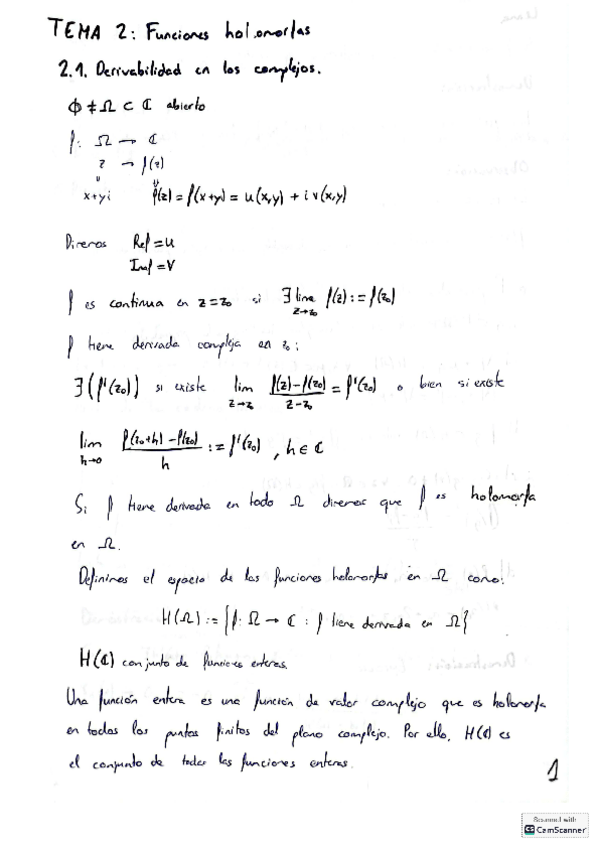 TEMA 2: Funciones holomorfas
2.1. Derivabilidad en los complejos.
∅ ≠ Ω ⊂ ℂ abierto
f: Ω → ℂ
z → f(z)
x+yi f(z) = f(x+yi) = u(x,y) + i v(x,y)
Diremos Ref = u
Imf = v
f es continua en z=z₀ si ∃ lim_{z→z₀} f(z) := f(z₀)
f tiene derivada compleja en z₀:
∃ (f'(z₀)) si existe lim_{z→z₀} (f(z)-f(z₀))/(z-z₀) = f'(z₀) o bien si existe
lim_{h→0} (f(z₀+h)-f(z₀))/h := f'(z₀), h ∈ ℂ
Si f tiene derivada en todo Ω diremos que f es holomorfa
en Ω.
Definimos el espacio de las funciones holomorfas en Ω como:
H(Ω) := {f: Ω → ℂ : f tiene derivada en Ω}
H(ℂ) conjunto de funciones enteras.
Una función entera es una función de valor complejo que es holomorfa
en todos los puntos finitos del plano complejo. Por ello, H(ℂ) es
el conjunto de todas las funciones enteras.
1
Scanned with
CS CamScanner